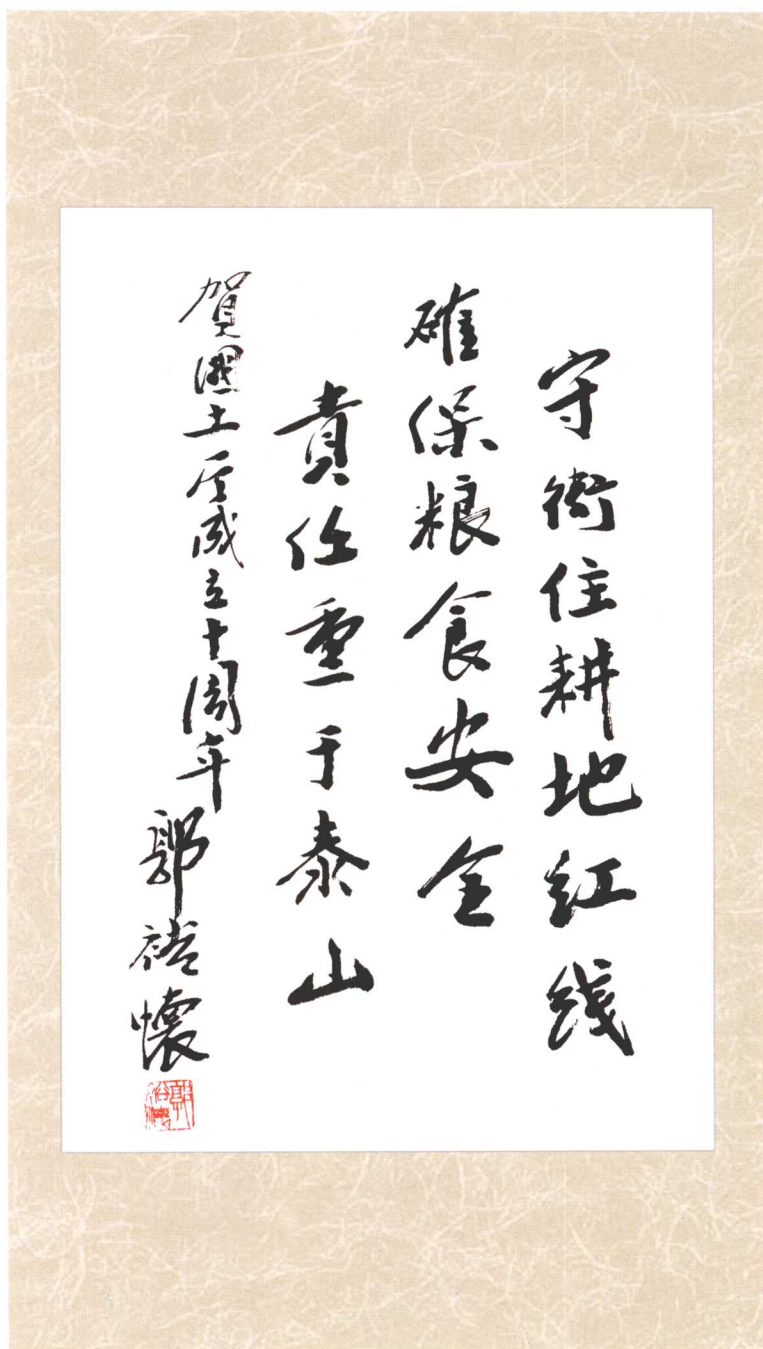 守衛住耕地红线
確保粮食安全
責任重于泰山
賀國土厅成立十周年
郭裕懷